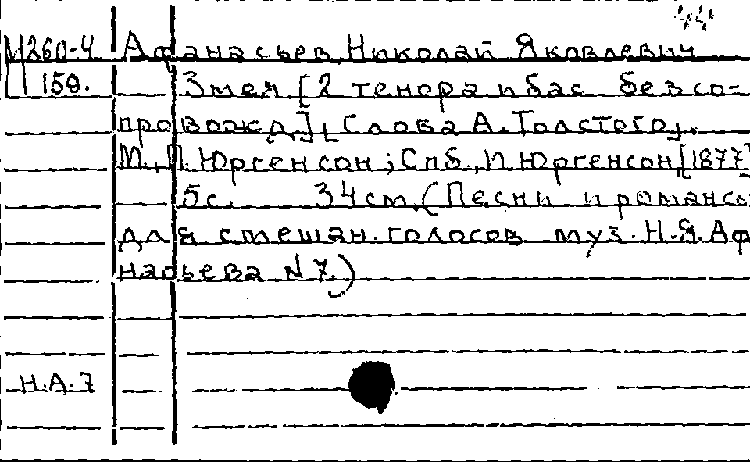 44
М260-4 Афанасьев, Николай Яковлевич
П 159. Змея [2 тенора и бас без со-
провожд.], Слова А. Толстого.
М., П. Юргенсон; Спб., И. Юргенсон, [1877]
5с. 34см. (Песни и романсы
для смешан. голосов муз. Н.Я. Афа
насьева N 7.)
Н.А.7